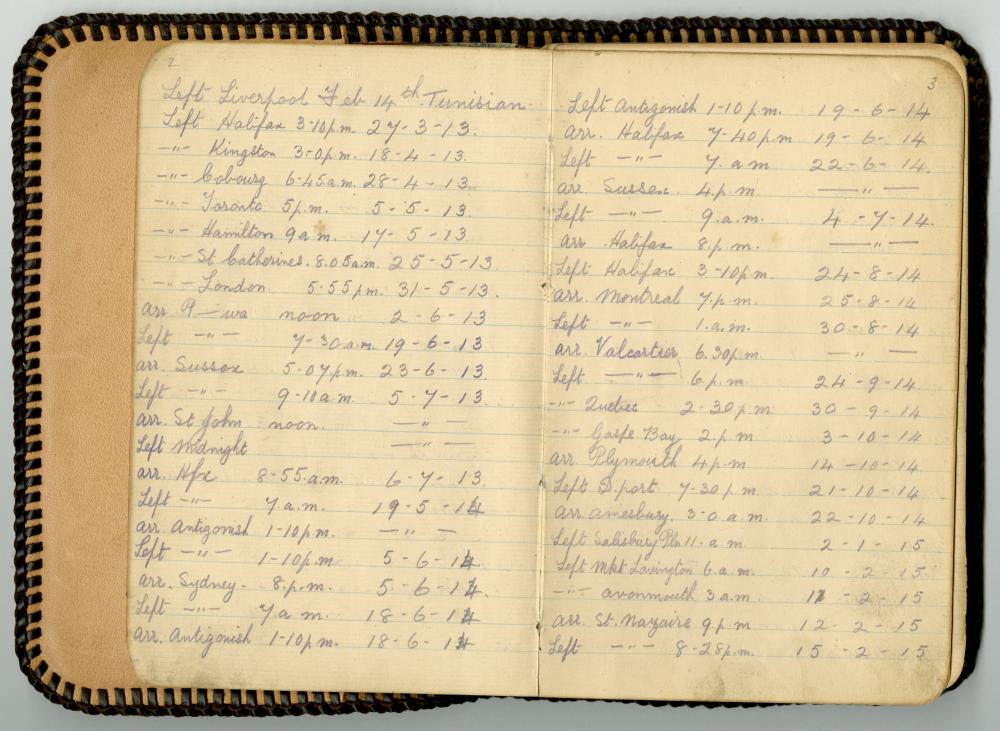 2
Left Liverpool Feb 14th. Tunisian
Left Halifax 3-10p.m. 27-3-13.
-"- Kingston 3-0p.m. 18-4-13.
-"- Cobourg 6-45a.m. 28-4-13.
-"- Toronto 5p.m. 5-5-13.
-"- Hamilton 9a.m. 17-5-13.
-"- St Catherines. 8.05a.m. 25-5-13.
-"- London 5.55pm. 31-5-13.
arr P-wa noon 2-6-13
Left -"- 7-30a.m. 19-6-13
arr. Sussex 5-07p.m. 23-6-13.
Left -"- 9-10a.m. 5-7-13.
arr. St John noon. -"-
Left Midnight -"-
arr. Hfx 8-55.a.m. 6-7-13.
Left -"- 7a.m. 19-5-14
arr. Antigonish 1-10p.m. -"-
Left -"- 1-10p.m. 5-6-14
arr. Sydney. 8.p.m. 5-6-14.
Left -"- 7a.m. 18-6-14
arr. Antigonish 1-10p.m. 18-6-14
3
Left Antigonish 1-10p.m. 19-6-14
arr. Halifax 7-40p.m 19-6-14.
Left -"- 7.a.m 22-6-14.
arr Sussex. 4p.m. -"-
Left -"- 9.a.m. 4-7-14.
arr Halifax 8.p.m. -"-
Left Halifax 3-10p.m. 24-8-14
arr. Montreal 7.p.m. 25-8-14
Left -"- 1.a.m. 30-8-14
arr. Valcartier 6.30p.m. -"-
Left -"- 6p.m. 24-9-14.
-"- Quebec 2-30p.m. 30-9-14
-"- Gaspe Bay 2.p.m 3-10-14
arr Plymouth 4p.m 14-10-14.
Left D.port 7-30p.m 21-10-14
arr Amesbury. 3-0.a.m. 22-10-14
Left Salisbury Pln 11.a.m 2-1-15
Left Mkt Lavington 6a.m. 10-2-15
-"- avonmouth 3a.m 11-2-15
arr. St. Nazaire 9p.m 12-2-15
Left -"- 8-28p.m. 15-2-15